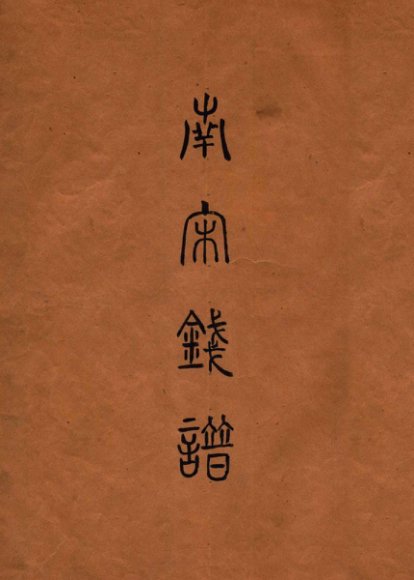 南宋錢譜